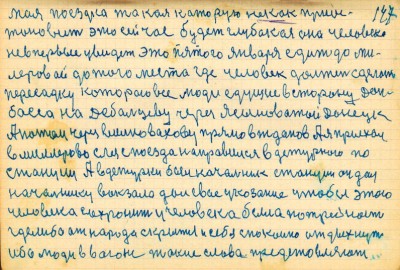 147
моя поездка такая которую не как приос-
тановит это сейчас будет глубокая она человеко
не впервые увидет это пятого января едит до ми-
леровай до того места где человек должен сделать
пересадку котораю все люди едущие в сторону Дон-
басса на Дебальцеву через Ясиноватой Донецка
А потом через волновахову прямо в жданов Ая приехал
в миллерово слез споезда направился в детурною по
станции А в детурки были началник станции он дал
началнику вокзала дал свае указание чтобы этого
человека сохронит у человека была потребност
где либо от народа скрытся и себя спокоино отдыхнуть
ибо люди в вагон такие слова предстовляют